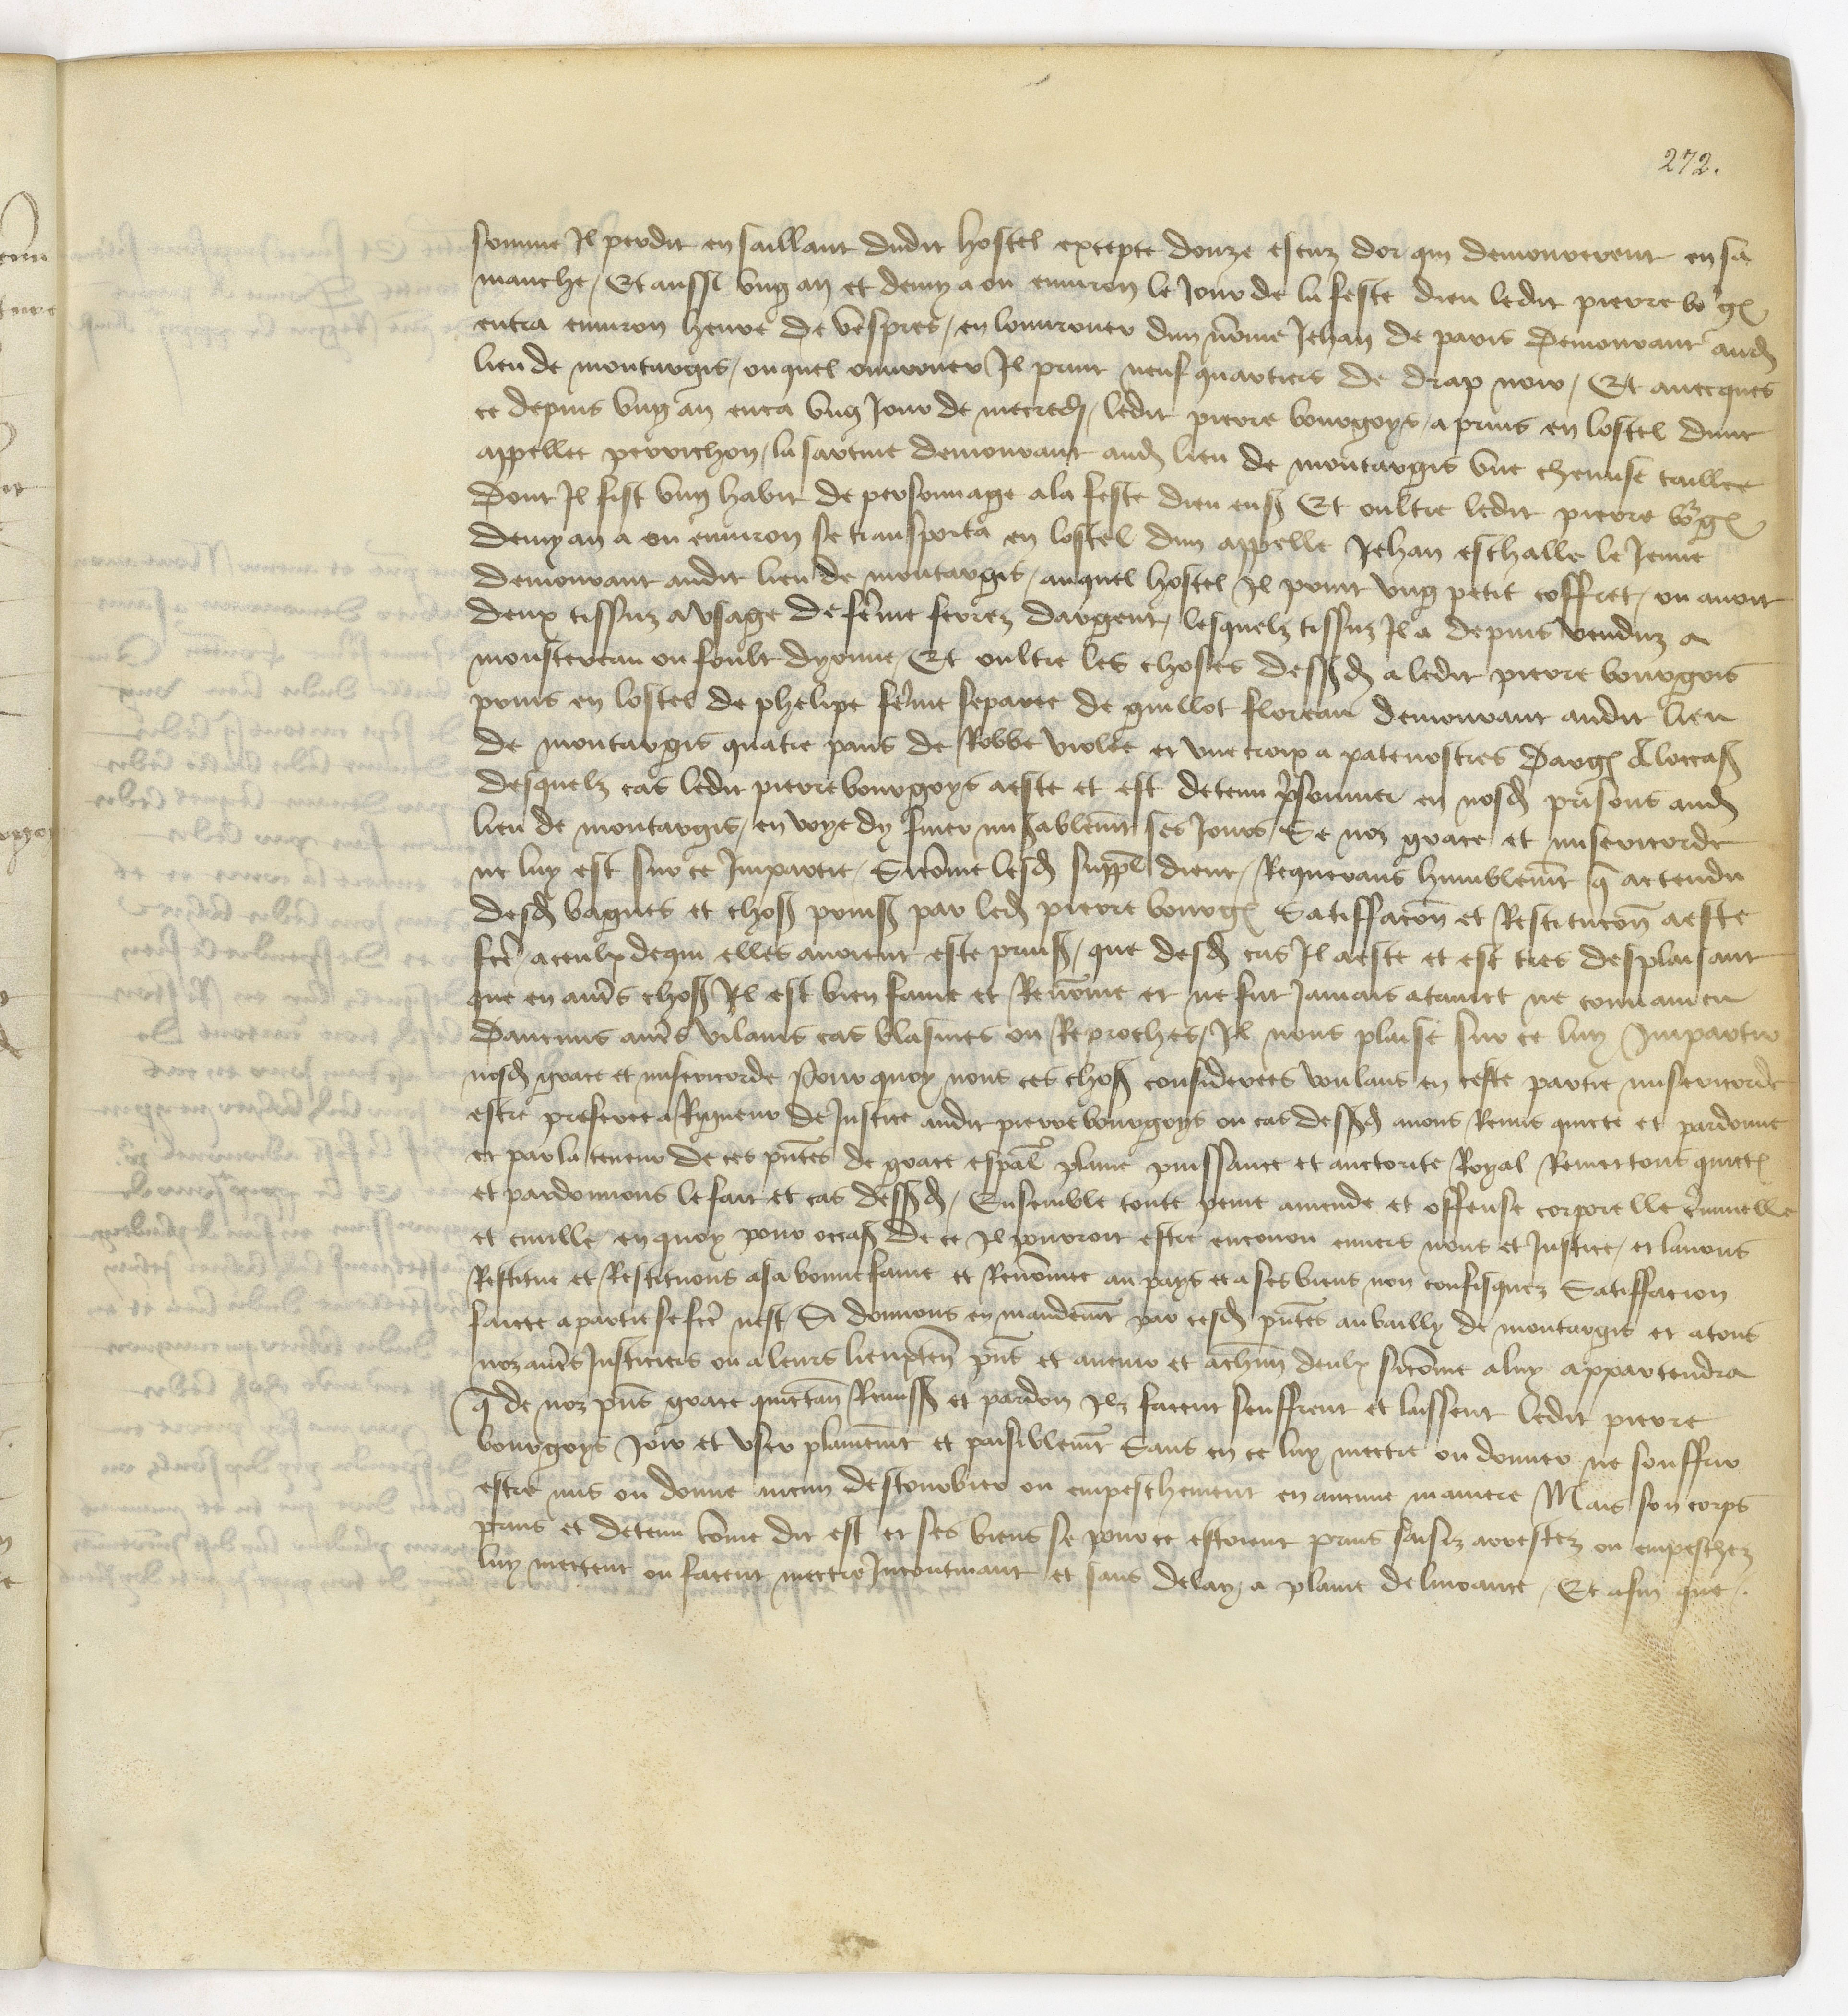 272.
somme Il perdit en saillant dudit hostel excepte douze escuz dor qui demourerent en sa
manche / Et aussi ung an et demy a ou environ le Jour de la feste dieu ledit pierre bourgs
entra environ heure de vespres / en louvrouer dun nome Jehan de paris demourant aud
lieu de montargis / ouquel ouvrouer Il print neuf quartiers de drap noir / Et avecques
ce depuis ung an enca ung Jour de mecredi / ledit pierre bourgoys / a prins en lostel dune
appellee perrichon / la sareme demourant aud lieu de montargis une chemise taillee
Dont Il fist ung habit de personnage a la feste dieu ens Et oultre ledit pierre bourg
demy an a ou environ se transporta en lostel dun appelle Jehan eschalle le Jeune
demourant audit lieu de montargis / auquel hostel Il print ung petit coffret / ou avoit
deux tissuz a usage de feme ferrez dargent / lesquelz tissuz Il a depuis venduz a
monstereau ou foult dyonne / Et oultre les choses dessusd a ledit pierre bourgois
prins en lostel de phelipe feme separee de guillot floreau demourant audit lieu
de montargis quatre pans de Robbe violee et une croix a patenostres darg A loccas
desquelz cas ledit pierre bourgoys a este et est detenu prisonnier en nosd prisons aud
lieu de montargis / en voye dy finer miserablemt ses Jours / Se noz grace et misericorde
ne luy est sur ce Impartie / Sicome lesd suppl dient / Requerans humblemt q actendu
desd bagues et chos prins par led pierre bourg Satiffacon et Restitucon a este
fce a ceulx de qui elles avoient este prins / que desd cas Il a este et est tres desplaisant
que en autres chos Il est bien fame et Renome et ne fut Jamais ataint ne convaincu
Daucuns autres vilains cas blasmes ou Reproches / Il nous plaise sur ce luy Impartir
nosd grace et misericorde Pour quoy nous ces chos considerees voulans en ceste partie misericorde
estre preferee a Rigueur de Justice audit pierre bourgoys ou cas dessusd avons Remis quicte et pardonne
et par la teneur de ces pntes de grace espal plaine puissance et auctorite Royal Remectons quict
et pardonnons le fait et cas dessusd / Ensemble toute peine amende et offense corporelle criminelle
et civille en quoy pour occas de ce Il pourroit estre encouru envers nous et Justice / et lavons
Restitue et Restituons a sa bonne fame et Renomee au pays et a ses biens non confisquez Satiffacion
faicte a partie se fce nest / Si donnons en mandemt par cesd pntes au bailly de montargis et a tous
noz autres Justiciers ou a leurs lieuxten pns et avenir et a chun deulx sicome a luy appartendra
q de noz pns grace quictan Remiss et pardon Ilz facent seuffrent et laissent ledit pierre
bourgoys Joir et user plainemt et paisiblemt Sans en ce luy mectre ou donner ne souffrir
estre mis ou donne aucun destourbier ou empeschement en aucune maniere Mais son corps
prins et detenu come dit est et ses biens se pour ce estoient prins saisiz arrestez ou empeschez
luy mectent ou facent mectre Incontinant et sans delay / a plaine delivrance / Et afin que /.